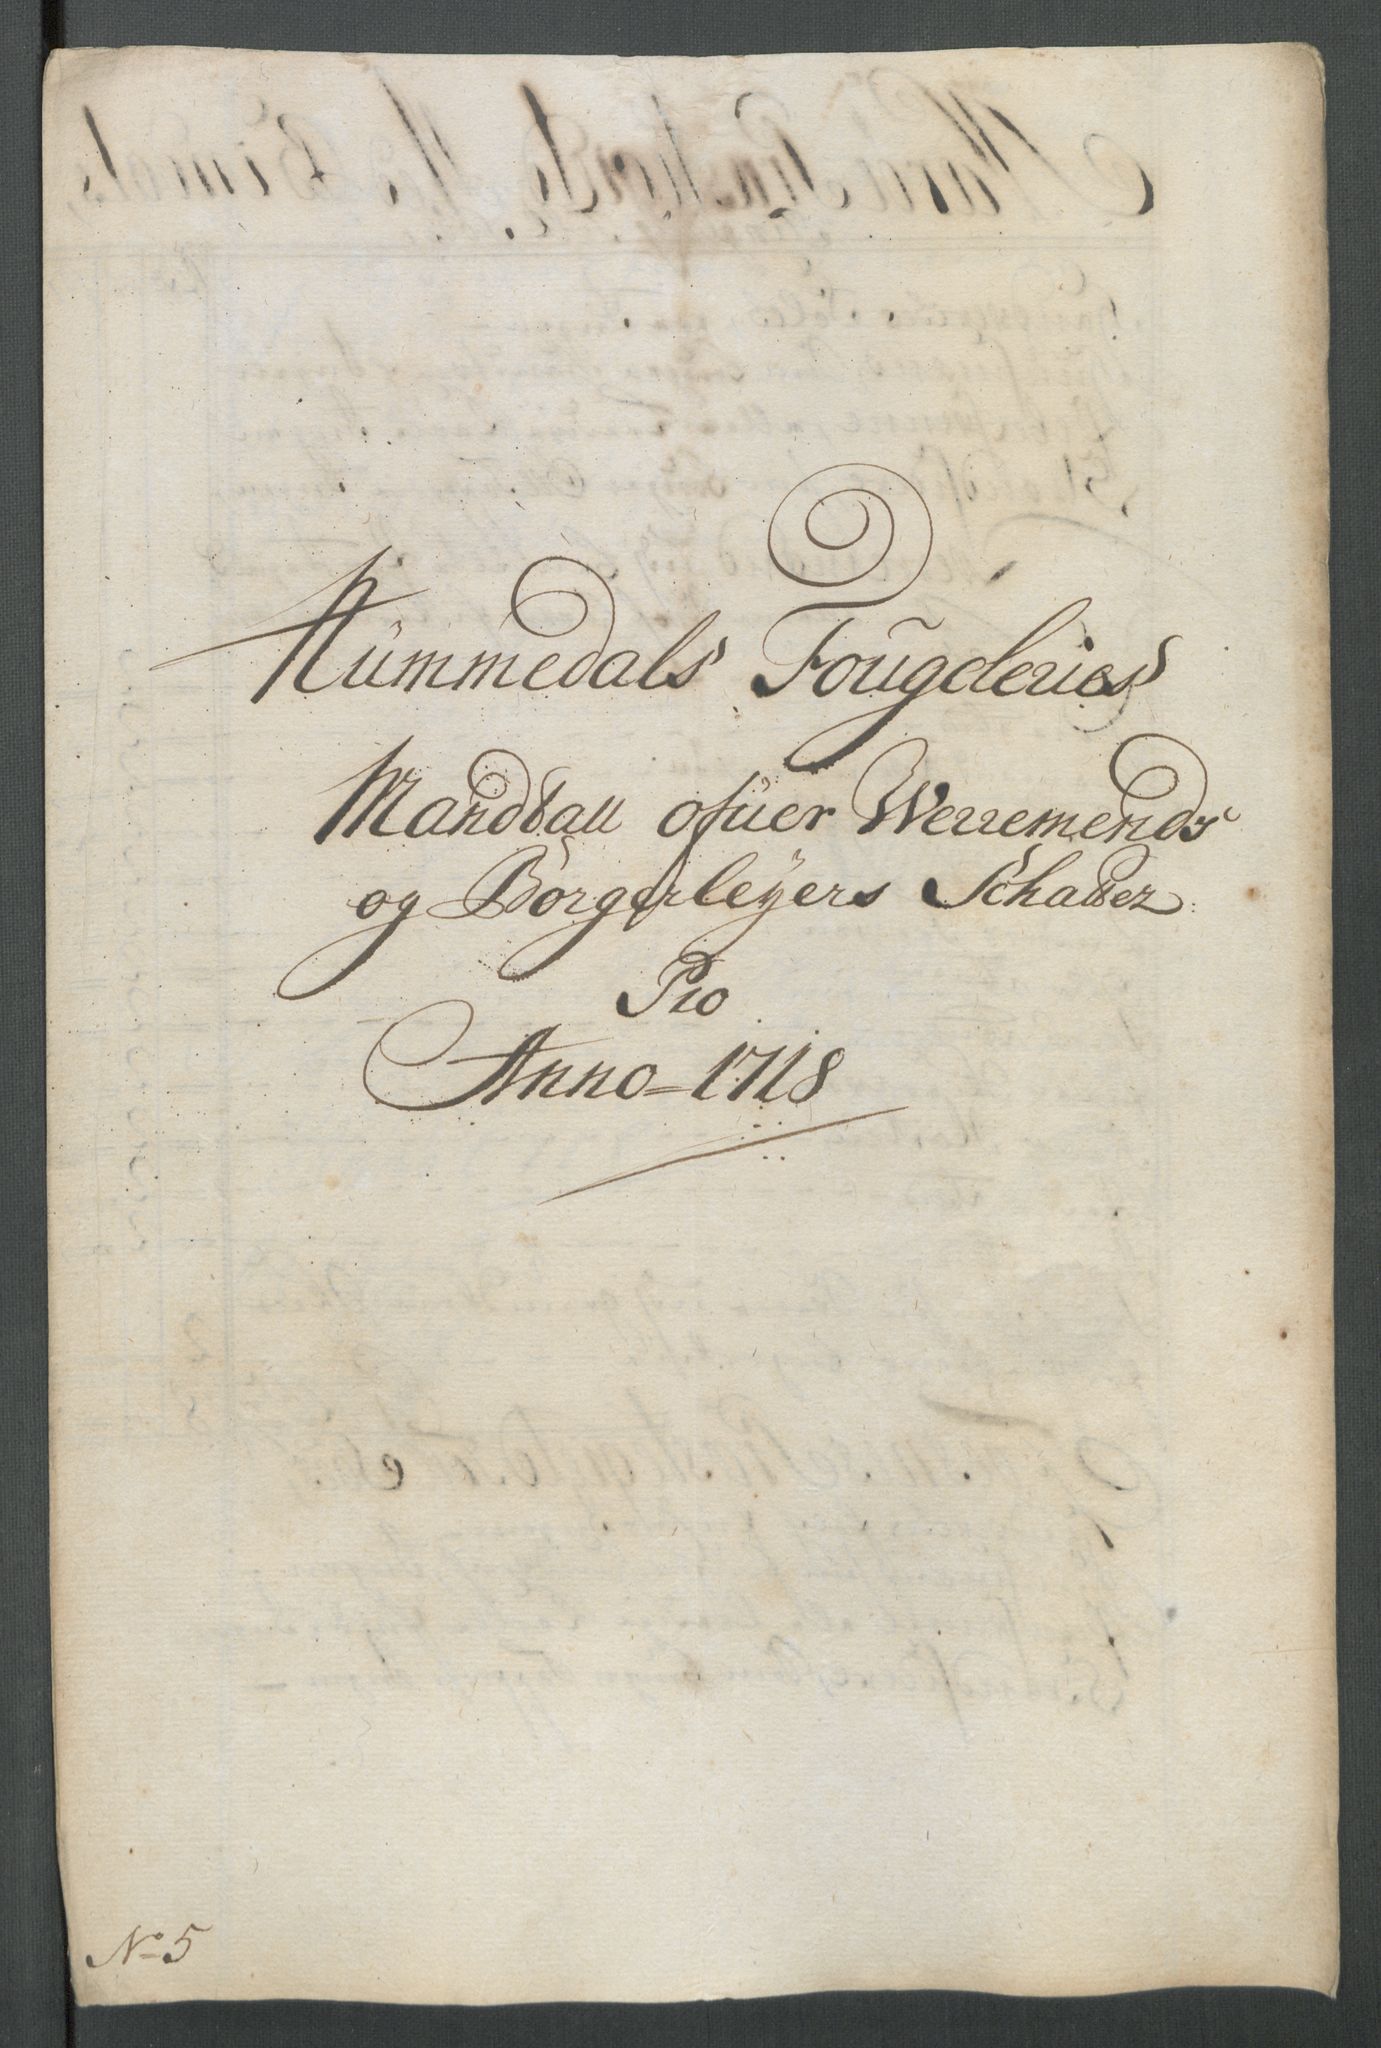 Nümmedals Fougderies
Mandtall ofuer Werremends
og Borgerleyers Schatter
Pro
Anno - 1718
No 5